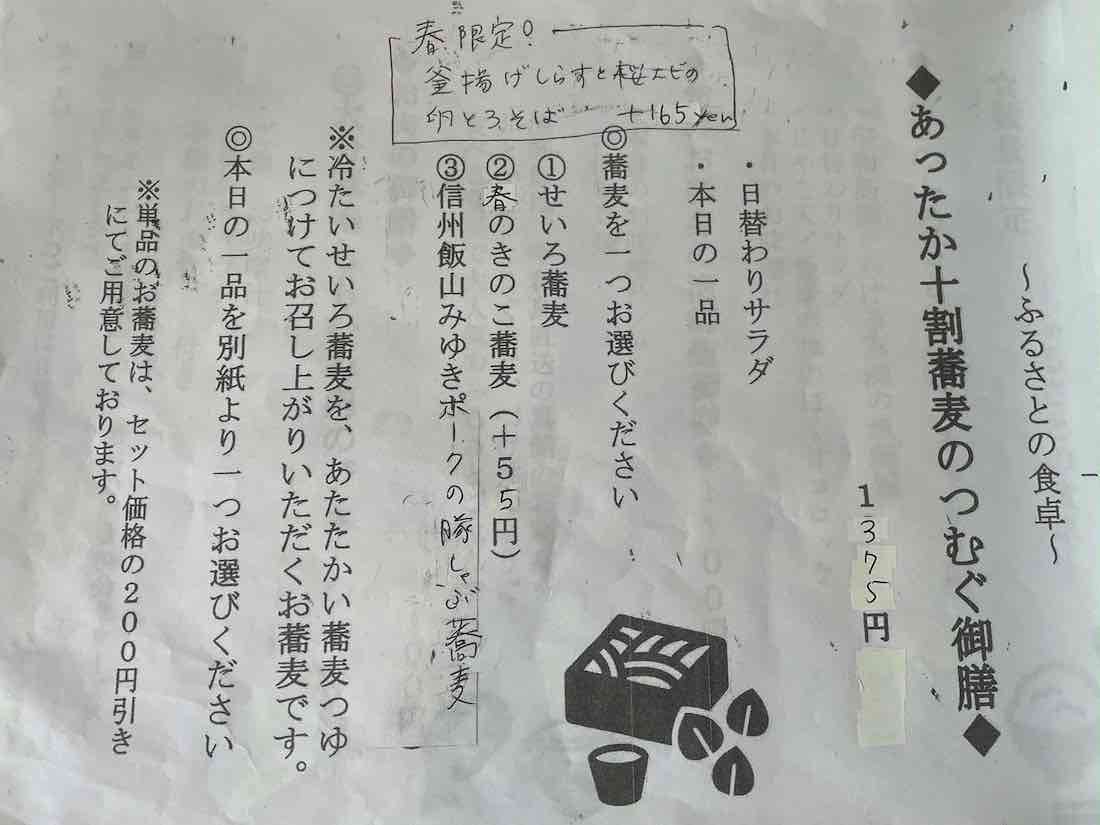 ～ふるさとの食卓～
◆あったか十割蕎麦のつむぐ御膳◆
1375円
・日替わりサラダ
・本日の一品
◎蕎麦を一つお選びください
①せいろ蕎麦
②春のきのこ蕎麦（＋55円）
③信州飯山みゆきポークの豚しゃぶ蕎麦
春限定!
釜揚げしらすと桜エビの
卵とろそば +165yen
※冷たいせいろ蕎麦を、あたたかい蕎麦つゆ
につけてお召し上がりいただくお蕎麦です。
◎本日の一品を別紙より一つお選びください
※単品のお蕎麦は、セット価格の２００円引き
にてご用意しております。